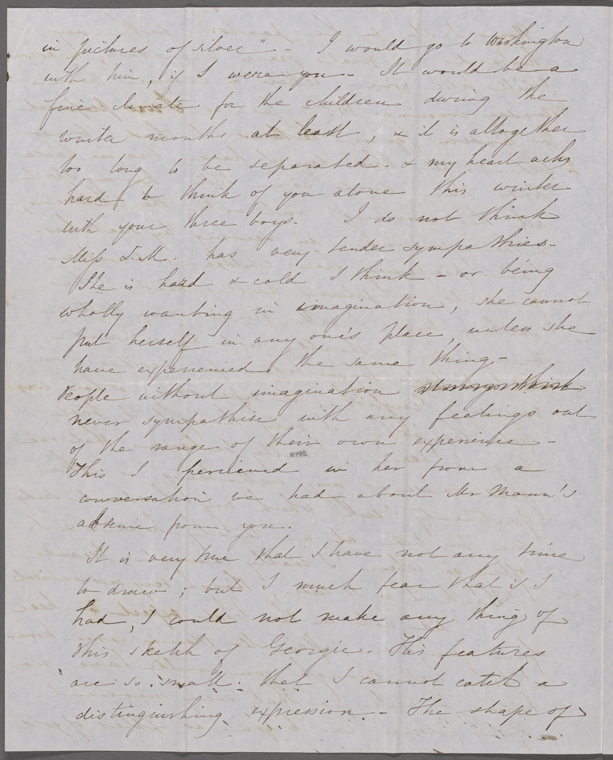 in pictures of silver" - I would go to Washington
with him, if I were you - It would be a
fine climate for the children during the
winter months at least, & it is altogether
too long to be separated - & my heart achs
hard to think of you alone this winter
with your three boys. I do not think
Miss has very tender sympathies -
She is hard & cold I think - or being
wholly wanting in imagination, she cannot
put herself in any one's place, unless she
have experienced the same thing -
People without imagination
never sympathise with any feelings out
of the range of their own experience -
This I percieved in her from a
conversation we had about Mr Mann's
absence from you.
It is very true that I have not any time
to draw; but I much fear that if I
had, I could not make any thing of
this sketch of Georgie. His features
are so small that I cannot catch a
distinguishing expression. - The shape of
NYPL